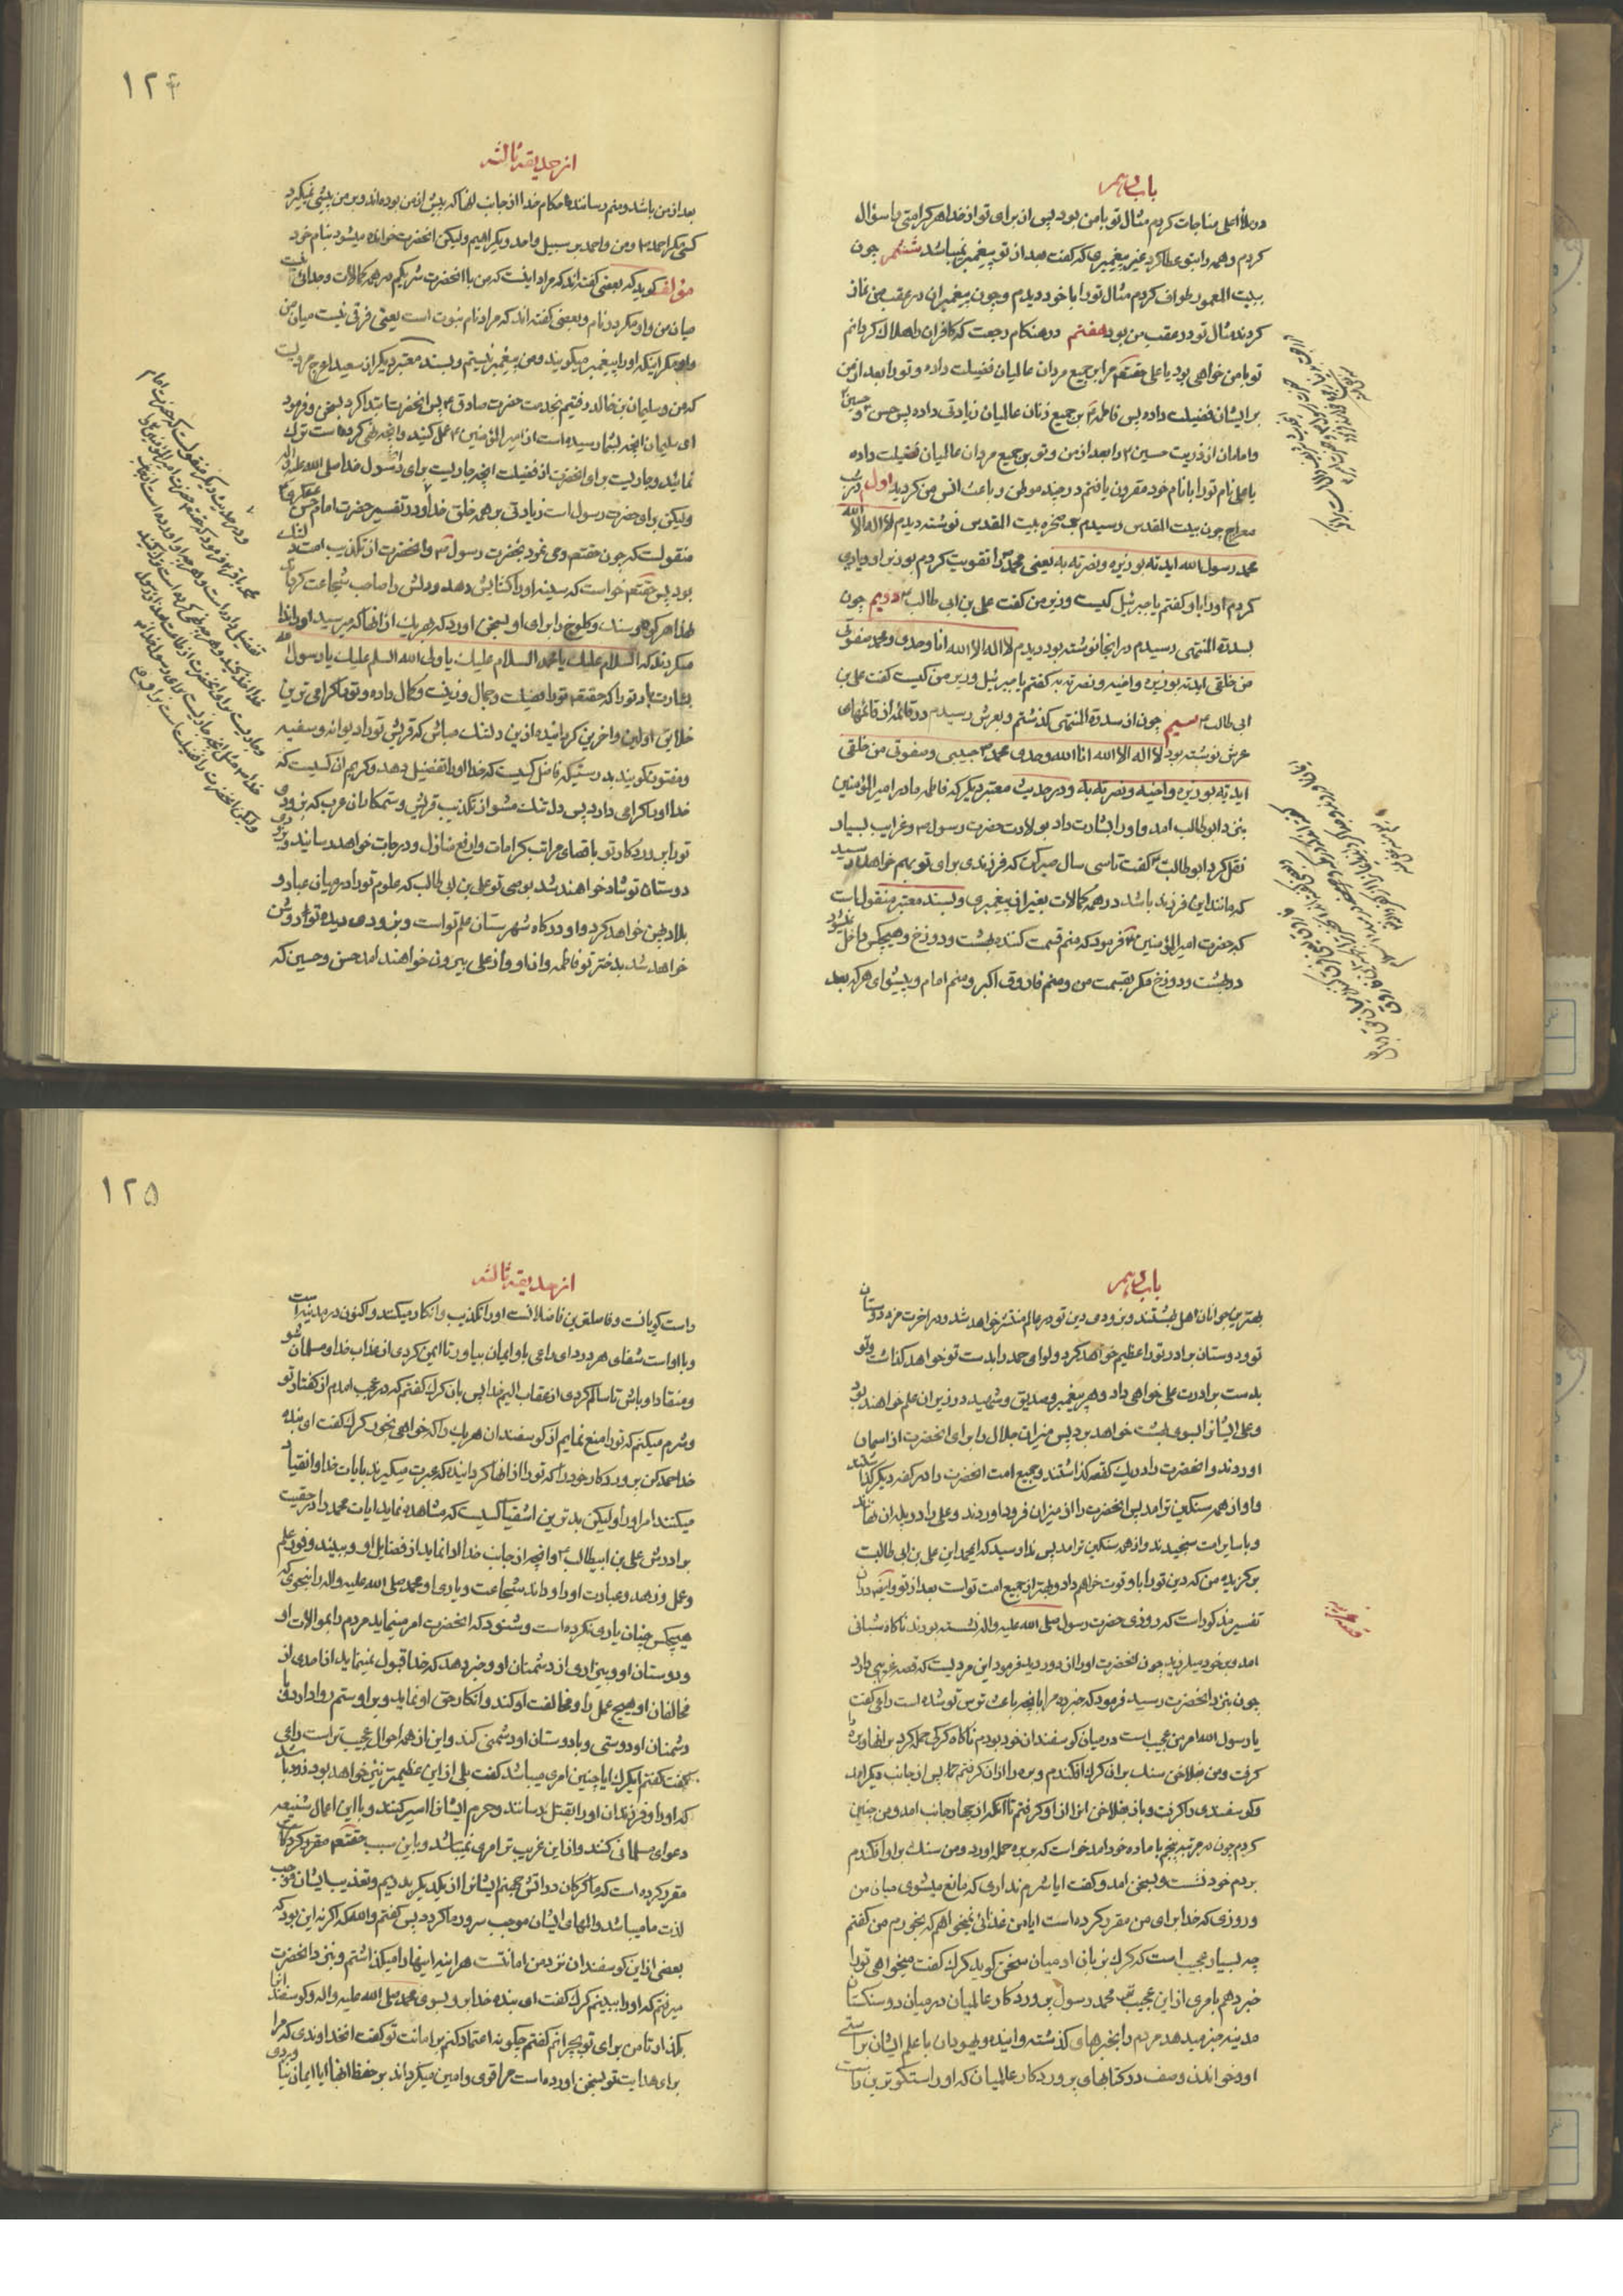 باب دهم
در ملأ اعلی مناجات کردم مثال تو با من بود پس از برای تو از خدا هر کرامتی را سؤال
کردم و همه را بتو عطا کرد غیر پیغمبری که گفت بعد از تو پیغمبر نمیباشد ششم چون
ببیت المعمور طواف کردم مثال تو را با خود دیدم و چون پیغمبران در عقب من نماز
کردند مثال تو در عقب من بود هفتم در هنگام رجعت که کافران را هلاک کردانم
تو با من خواهی بود یا علی حقتعم مرا بر جمیع مردان عالمیان فضیلت داده و تو را بعد از من
بر ایشان فضیلت داده پس فاطمه را بر جمیع زنان عالمیان زیادتی داده پس حسن و حسین
و امامان از ذریت حسین را بعد از من و تو بر جمیع مردان عالمیان فضیلت داده
یا علی نام تو را با نام خود مقرون یافتم در چند موطن و باعث انس من کردید اول در شب
معراج چون ببیت المقدس رسیدم بر صخره بیت المقدس نوشته دیدم لا اله الا الله
محمد رسول الله ایدته بوزیره و نصرته به یعنی محمد را تقویت کردم بوزیر او و یاری
کردم او را باو گفتم یا جبرئیل کیست وزیر من گفت علی بن ابی طالب دویم چون
بسدرة المنتهی رسیدم در انجا نوشته بود دیدم لا اله الا الله انا وحدی و محمد صفوتی
من خلقی ایدته بوزیره و اخیه و نصرته به گفتم یا جبرئیل وزیر من کیست گفت علی بن
ابی طالب سیم چون از سدرة المنتهی کذشتم و بعرش رسیدم در قائمه از قائمهای
عرش نوشته بود لا اله الا الله انا الله وحدی محمد حبیبی و صفوتی من خلقی
ایدته بوزیره و اخیه و نصرته به و در حدیث معتبر دیکر که فاطمه مادر امیر المؤمنین
بنزد ابو طالب امد و او را بشارت داد بولادت حضرت رسول و غرایب بسیار
نقل کرد ابو طالب گفت تا سی سال صبر کن که فرزندی برای تو بهم خواهد رسید
که مانند این فرزند باشد در همه کمالات بغیر از پیغمبری و بسند معتبر منقولست
که حضرت امیر المؤمنین فرمود که منم قسمت کننده بهشت و دوزخ و هیچکس داخل نمیشود
در بهشت و دوزخ مکر بقسمت من و منم فاروق اکبر و منم امام و پیشوای هر که بعد
۱۲۴
از حدیقه ثالثه
بعد از من باشد و منم رساننده احکام خدا از جانب انها که پیش از من بوده‌اند و بر من پیشی نمیکیرد
کسی مکر احمد و من و احمد بر سبیل واحد و یکراهیم ولیکن انحضرت خوانده میشود بنام خود
مؤلف کوید که بعضی گفته‌اند که مراد اینست که من با انحضرت شریکم در همه کمالات و جدائی نیست
میان من و او مکر در نام و بعضی گفته اند که مراد نام نبوت است یعنی فرقی نیست میان من
و او مکر اینکه او را پیغمبر میکویند و من پیغمبر نیستم و بسند معتبر دیکر از سعید اعرج مرویست
که من و سلیمان بن خالد رفتیم بخدمت حضرت صادق پس انحضرت ابتدا کرد بسخن و فرمود
ای سلیمان انچه بشما رسیده است از امیر المؤمنین عمل کنید و انچه نهی کرده است ترک
نمائید و جاریست برای انحضرت از فضیلت انچه جاریست برای رسول خدا صلی الله علیه و اله
ولیکن برای حضرت رسول است زیادتی بر همه خلق خدا و در تفسیر حضرت امام حسن عسکری
منقولست که چون حقتعم وحی نمود بحضرت رسول و انحضرت از تکذیب امت دلتنک
بود پس حقتعم خواست که سینه او را کشایش دهد و دلش را صاحب شجاعت کرداند
لهذا هر کوه و سنک و کلوخ را برای او بسخن اورد که هر یک از انها که میرسید او را ندا
میکردند که السلام علیک یا محمد السلام علیک یا ولی الله السلم علیک یا رسول الله
بشارت باد تو را که حقتعم تو را فضیلت و جمال و زینت و کمال داده و تو را کرامی ترین
خلایق اولین و اخرین کردانیده از این دلتنک مباش که قریش تو را دیوانه و سفیه
و مفتون کویند بدرستیکه فاضل کسیست که خدا او را تفضیل دهد و کریم ان کسیست که
خدا او را کرامی دارد پس دلتنک مشو از تکذیب قریش و ستمکاران عرب که بزودی
تو را پروردکار تو باقصای مراتب کرامات و ارفع منازل و درجات خواهد رسانید و بزودی
دوستان تو شاد خواهند شد بوصی تو علی بن ابی طالب که علوم تو را در میان عباد و
بلاد پهن خواهد کرد و او درکاه شهرستان علم تو است و بزودی دیده تو روشن
خواهد شد بدختر تو فاطمه و از او و از علی بیرون خواهند امد حسن و حسین که
باب دهم
بهترین جوانان اهل بهشتند و بزودی دین تو در عالم منتشر خواهد شد و در اخرت مزد دوستان
تو و دوستان برادر تو را عظیم خواهد کرد و لوای حمد را بدست تو خواهد کذاشت و تو
بدست برادرت علی خواهی داد و هر پیغمبر و صدیق و شهید در زیر ان علم خواهند بود
و علی ایشانرا بسوی بهشت خواهد برد پس میزان جلال را برای انحضرت از اسمان
اوردند و انحضرت را در یک کفه کذاشتند و جمیع امت انحضرت را در کفه دیکر کذاشتند
و او از همه سنکین تر امد پس انحضرت را از میزان فرود اوردند و علی را در پله ان نهادند
و با سایر امت سنجیدند و از همه سنکین تر امد پس ندا رسید که ای محمد این علی بن ابی طالبست
برکزیده من که دین تو را باو قوت خواهم داد و بهتر از جمیع امت تو است بعد از تو و ایضا در ان
تفسیر مذکور است که روزی حضرت رسول صلی الله علیه و اله نشسته بودند ناکاه شبانی
امد و بر خود میلرزید چون انحضرت او را از دور دید فرمود این مردیست که قصه غریبی دارد
چون بنزد انحضرت رسید فرمود که خبر ده مرا بانچه باعث ترس تو شده است راعی گفت
یا رسول الله امر من عجیب است در میان کوسفندان خود بودم ناکاه کرکی حمله کرد بر انها و بره را
کرفت و من بفلاخن سنک بر ان کرک افکندم و بره را از ان کرفتم پس از جانب دیکر امد
و کوسفندی را کرفت و باز بفلاخن انرا از او کرفتم تا انکه از چهار جانب امد و من چنین
کردم چون در مرتبه پنجم با ماده خود امد خواست که بر بره حمله اورد و من سنک بر او افکندم
بر دم خود نشست و بسخن امد و گفت ایا شرم نداری که مانع میشوی میان من
و روزی که خدا برای من مقرر کرده است ایا من غذائی نمیخواهم که بخورم من گفتم
چه بسیار عجیب است که کرک بزبان ادمیان سخن کوید کرک گفت میخواهی تو را
خبر دهم بامری از این عجیب تر محمد رسول پروردکار عالمیان در میان دو سنکستان
مدینه خبر میدهد مردم را بخبرهای کذشته و اینده و یهودان با علم ایشان براستی
او و خواندن وصف در کتابهای پروردکار عالمیان که او راستکوترین راست
۱۲۵
از حدیقه ثالثه
راست کویانست و فاضلترین فاضلانست او را تکذیب و انکار میکنند و اکنون در مدینه است
و با او است شفای هر درد ای راعی باو ایمان بیاور تا ایمن کردی از عذاب خدا و مسلمان شو
و منقاد او باش تا سالم کردی از عقاب الیم خدا پس بان کرک گفتم که در عجب امدم از گفتار تو
و شرم میکنم که تو را منع نمایم از کوسفندان هر یک را که خواهی بخور کرک گفت ای بنده
خدا حمد کن پروردکار خود را که تو را از انها کردانیده که عبرت میکیرند بایات خدا و انقیاد
میکنند امر او را ولیکن بدترین اشقیا کسیست که مشاهده نماید ایات محمد را در حقیت
برادرش علی بن ابیطالب و انچه از جانب خدا ادا نماید از فضایل او و ببیند وفور علم
و عمل و زهد و عبادت او را و داند شجاعت و یاری او محمد صلی الله علیه و اله را بنحوی که
هیچکس چنان یاری نکرده است و شنود که انحضرت امر مینماید مردم را بموالات او
و دوستان او و بیزاری از دشمنان او و خبر دهد که خدا قبول نمینماید از احدی از
مخالفان او هیچ عمل را و مخالفت او کند و انکار حق او نماید و بر او ستم روا دارد و با
دشمنان او دوستی و با دوستان او دشمنی کند و این از همه احوال عجیب تر است راعی
گفت گفتم ای کرک ایا چنین امری میباشد گفت بلی از این عظیمتر نیز خواهد بود زود باشد
که او را و فرزندان او را بقتل رسانند و حرم ایشانرا اسیر کنند و با این اعمال شنیعه
دعوای مسلمانی کنند و از این غریب تر امری نمیباشد و باین سبب حقتعم مقرر کرد
مقرر کرده است که ما کرکان در اتش جهنم ایشانرا از یکدیکر بدریم و تعذیب ایشان موجب
لذت ما میباشد و المهای ایشان موجب سرور ما کردد پس گفتم والله که اکر نه این بود که
بعضی از این کوسفندان نزد من امانتست هراینه اینها را میکذاشتم و بنزد انحضرت
میرفتم که او را ببینم کرک گفت ای بنده خدا برو بسوی محمد صلی الله علیه و اله و کوسفندانرا
بکذار تا من برای تو بچرانم گفتم چکونه اعتماد کنم بر امانت تو گفت انخداوندی که مرا
برای هدایت تو بسخن اورده است مرا قوی و امین میکرداند بر حفظ انها ایا ایمان نیاوردی